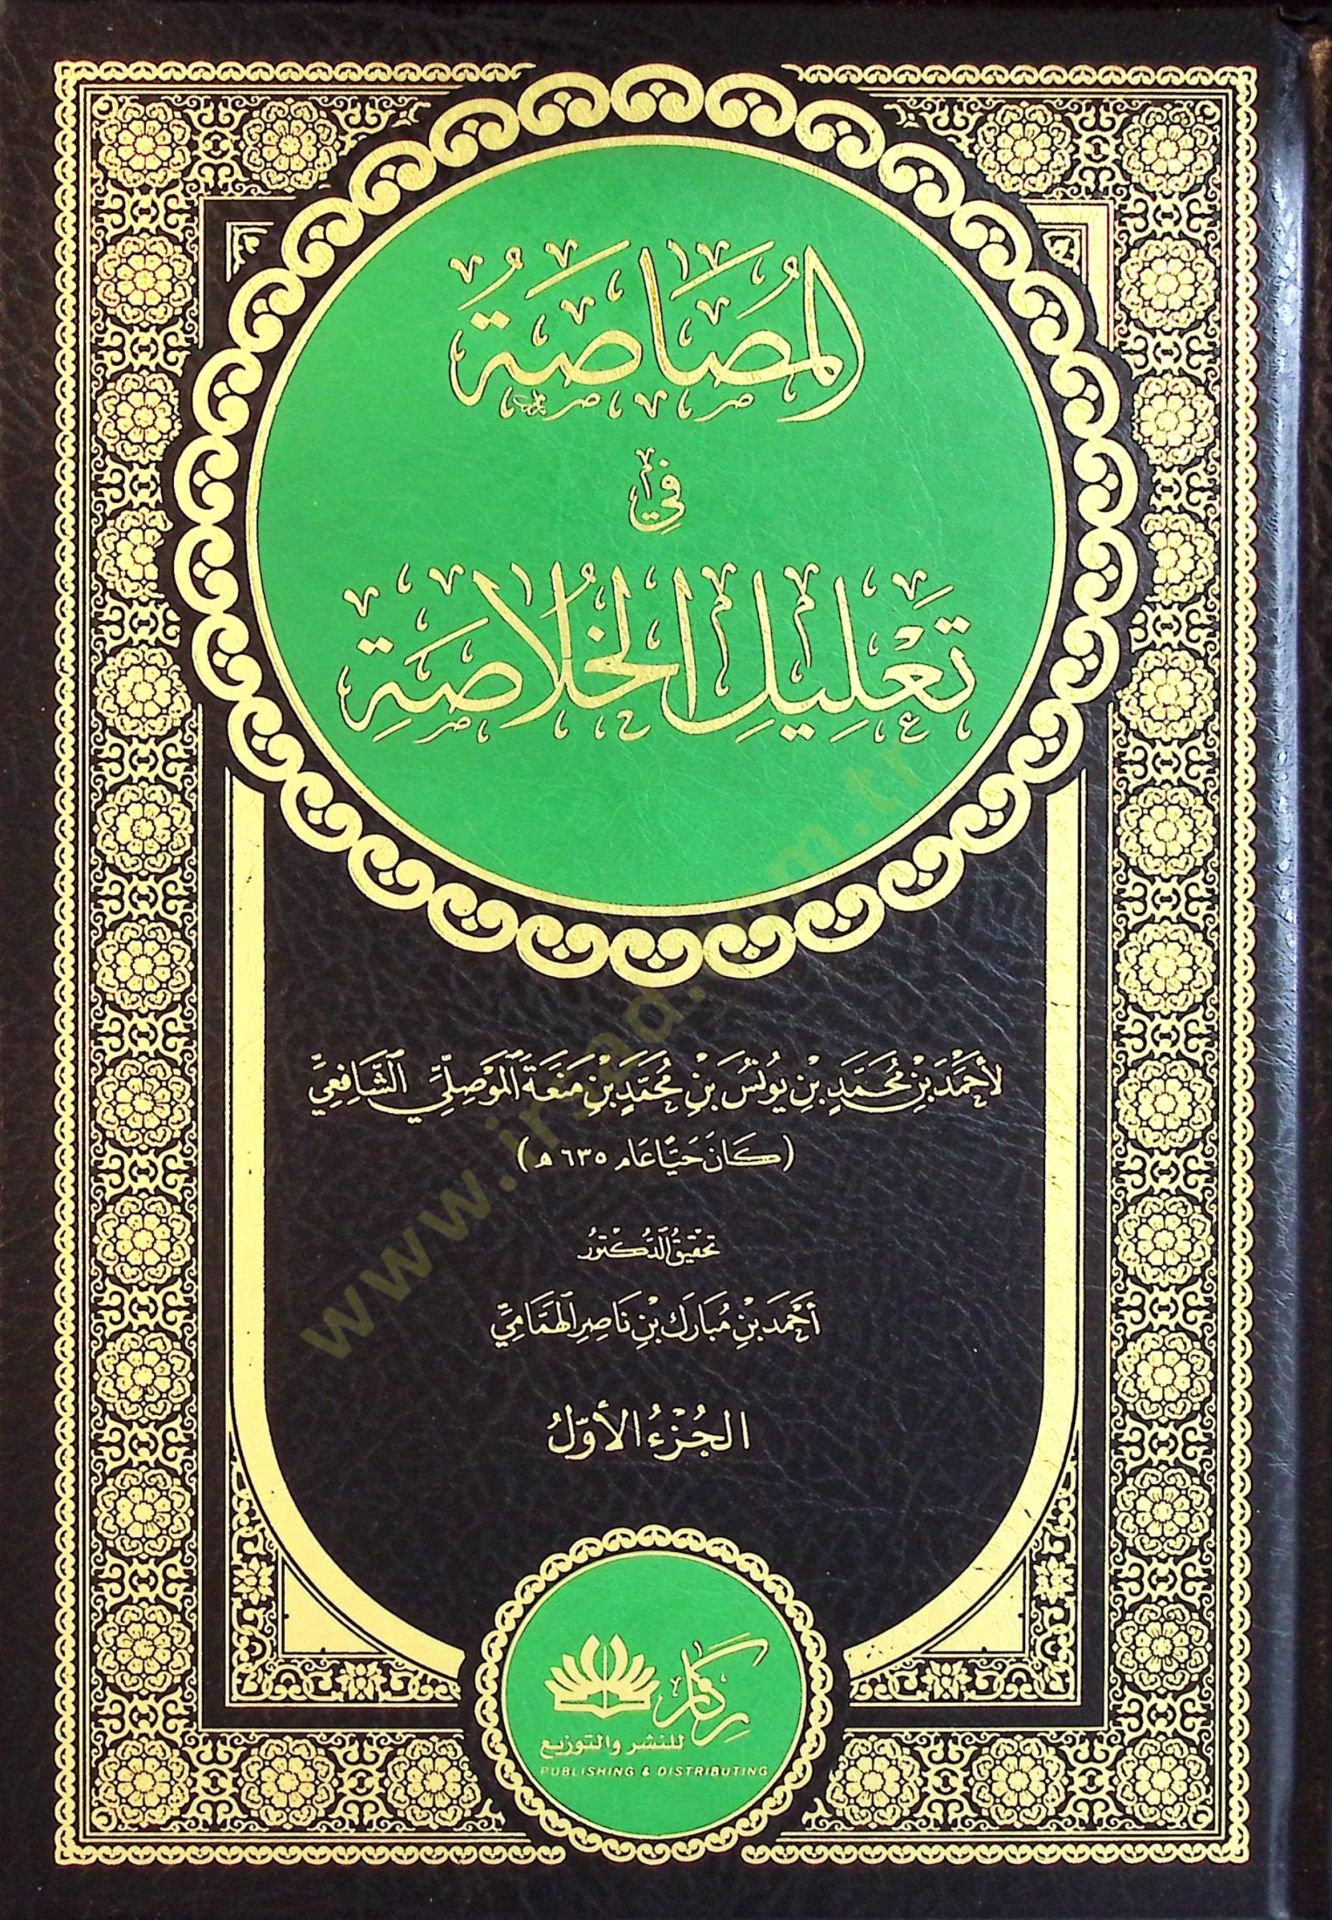 المُصَاصَةُ
فِي
تَعْلِيلِ الخُلَاصَةِ
لأَحْمَدَ بْنِ مُحَمَّدِ بْنِ يُونُسَ بْنِ مُحَمَّدِ بْنِ مَنَعَةَ المَوْصِلِيِّ الشَّافِعِيِّ
(كَانَ حَيًّا عَام ٦٣٥ هـ)
تحقيقُ الدُّكتورُ
أَحْمَد بْن مُبَارَك بْن نَاصِر الهَمَّامِيّ
الجُزْءُ الأَوَّلُ
رگائز
للنشر والتوزيع
PUBLISHING & DISTRIBUTING
www.irsad.com.tr